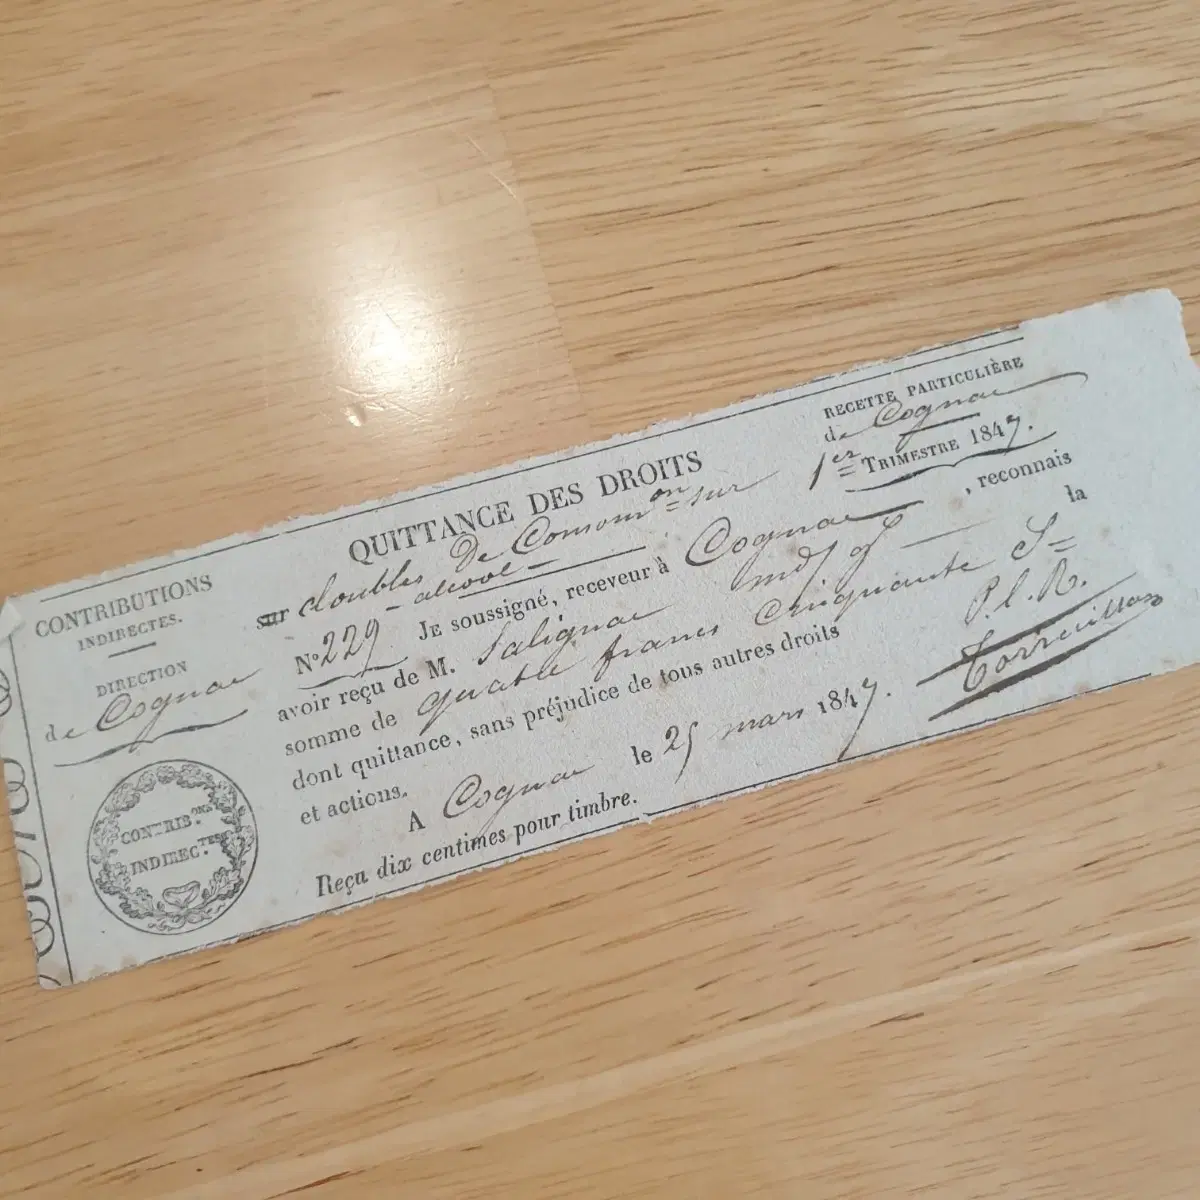 CONTRIBUTIONS
INDIRECTES.
DIRECTION
de Cognac
CONTRIB.ONS
INDIREC.TES
QUITTANCE DES DROITS
sur doubles De Consomon sur
alcool
RECETTE PARTICULIÈRE
de Cognac
1er TRIMESTRE 1847.
No 229 JE soussigné, receveur à Cognac, reconnais
avoir reçu de M. Salignac la
somme de quatre francs cinquante
dont quittance, sans préjudice de tous autres droits
et actions.
P. l. R.
A Cognac le 25 mars 1847.
Reçu dix centimes pour timbre.